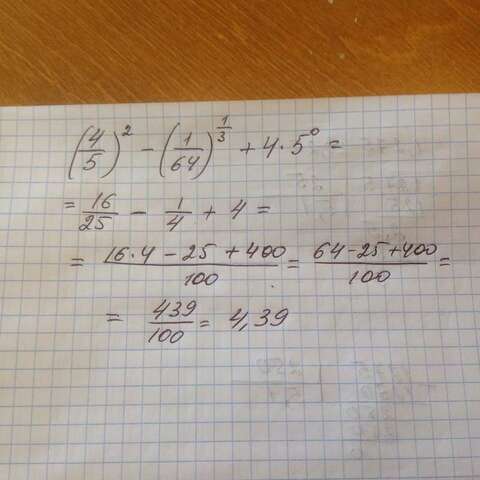 (4/5)² − (1/64)^(1/3) + 4 · 5⁰ =
= 16/25 − 1/4 + 4 =
= (16·4 − 25 + 400)/100 = (64 − 25 + 400)/100 =
= 439/100 = 4,39